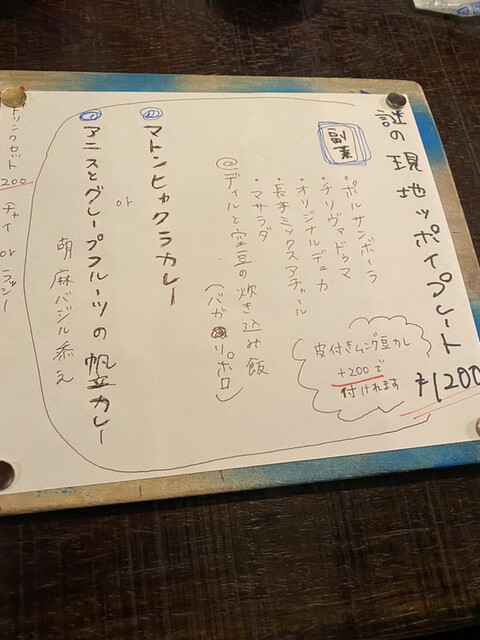 謎の現地ッポイプレート
¥1200
副菜
・ポルサンボーラ
・チリヴァドゥマ
・オリジナルデュカ
・長芋ミックスアチャール
・マサラダ
◎ディルと空豆の炊き込み飯
(バガリポロ)
皮付きムング豆カレ
+200で
付けれます
マトンヒャクラカレー
or
アニスとグレープフルーツの帆立カレー
胡麻バジル添え
ドリンクセット
200
チャイ or ラッシー